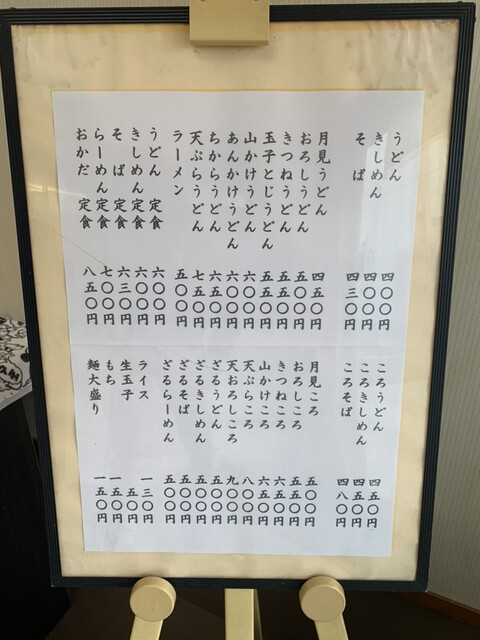 うどん 四〇〇円
きしめん 四〇〇円
そば 四三〇円
月見うどん 四五〇円
おろしうどん 五〇〇円
きつねうどん 五五〇円
玉子とじうどん 五五〇円
山かけうどん 六〇〇円
あんかけうどん 六〇〇円
ちからうどん 六五〇円
天ぷらうどん 七五〇円
ラーメン 五〇〇円
うどん 定食 六〇〇円
きしめん 定食 六〇〇円
そば 定食 六三〇円
らーめん 定食 七〇〇円
おかだ 定食 八五〇円
ころうどん 四五〇円
ころきしめん 四五〇円
ころそば 四八〇円
月見ころ 五〇〇円
おろしころ 五五〇円
きつねころ 六五〇円
山かけころ 六五〇円
天ぷらころ 八〇〇円
天おろしころ 九〇〇円
ざるうどん 五〇〇円
ざるきしめん 五〇〇円
ざるそば 五〇〇円
ざるらーめん 五〇〇円
ライス 一三〇円
生玉子 五〇円
もち 一五〇円
麺大盛り 一五〇円